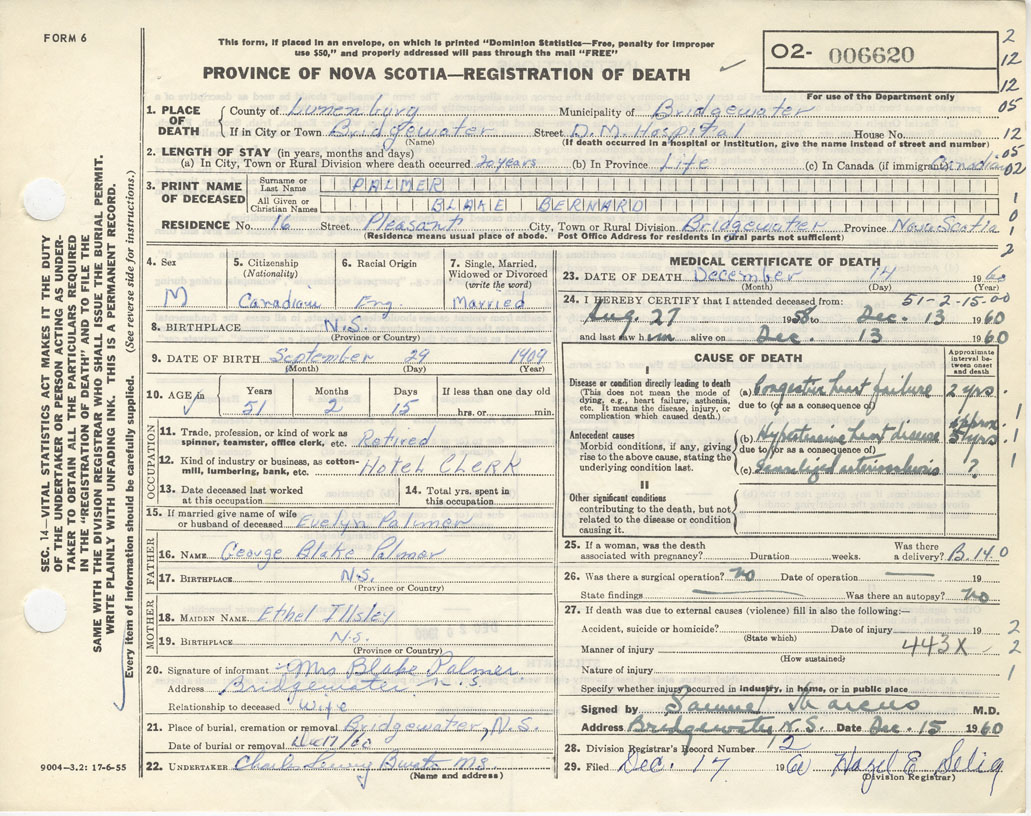 FORM 6
This form, if placed in an envelope, on which is printed "Dominion Statistics—Free, penalty for improper
use $50," and properly addressed will pass through the mail "FREE"
PROVINCE OF NOVA SCOTIA—REGISTRATION OF DEATH
O2- 006620
For use of the Department only
2
12
12
05
12
05
02
1
0
1
2
1. PLACE OF DEATH
County of Lunenburg Municipality of Bridgewater
If in City or Town Bridgewater Street D.M. Hospital House No.
(Name) (If death occurred in a hospital or institution, give the name instead of street and number)
2. LENGTH OF STAY (in years, months and days)
(a) In City, Town or Rural Division where death occurred 20 years (b) In Province Life (c) In Canada (if immigrant) Canadian
3. PRINT NAME OF DECEASED
Surname or Last Name PALMER
All Given or Christian Names BLAKE BERNARD
RESIDENCE No. 16 Street Pleasant City, Town or Rural Division Bridgewater Province Nova Scotia
(Residence means usual place of abode. Post Office Address for residents in rural parts not sufficient)
4. Sex
M
5. Citizenship
(Nationality)
Canadian
6. Racial Origin
Eng.
7. Single, Married,
Widowed or Divorced
(write the word)
Married
8. BIRTHPLACE N.S.
(Province or Country)
9. DATE OF BIRTH September 29 1909
(Month) (Day) (Year)
10. AGE in
Years 51
Months 2
Days 15
If less than one day old
hrs. or min.
OCCUPATION
11. Trade, profession, or kind of work as
spinner, teamster, office clerk, etc. Retired
12. Kind of industry or business, as cotton-
mill, lumbering, bank, etc. Hotel Clerk
13. Date deceased last worked
at this occupation
14. Total yrs. spent in
this occupation
15. If married give name of wife
or husband of deceased Evelyn Palmer
FATHER
16. NAME George Blake Palmer
17. BIRTHPLACE N.S.
(Province or Country)
MOTHER
18. MAIDEN NAME Ethel Illsley
19. BIRTHPLACE N.S.
(Province or Country)
20. Signature of informant Mrs Blake Palmer
Address Bridgewater N.S.
Relationship to deceased Wife
21. Place of burial, cremation or removal Bridgewater, N.S.
Date of burial or removal Dec 17/60
22. UNDERTAKER Charles
(Name and address)
MEDICAL CERTIFICATE OF DEATH
23. DATE OF DEATH December 14 1960
(Month) (Day) (Year)
24. I HEREBY CERTIFY that I attended deceased from: 51-2-15-00
Aug. 27 1958 to Dec. 13 1960
and last saw him alive on Dec. 13 1960
CAUSE OF DEATH
Approximate
interval be-
tween onset
and death
I
Disease or condition directly leading to death
(This does not mean the mode of
dying, e.g., heart failure, asthenia,
etc. It means the disease, injury, or
complication which caused death.)
(a) Congestive heart failure 2 yrs.
due to (or as a consequence of)
Antecedent causes
Morbid conditions, if any, giving
rise to the above cause, stating the
underlying condition last.
(b) Hypertensive heart disease approx. 5 yrs. 1
due to (or as a consequence of) 1
(c) Generalized arteriosclerosis ? 1
II
Other significant conditions
contributing to the death, but not
related to the disease or condition
causing it.
25. If a woman, was the death
associated with pregnancy? Duration weeks. Was there
a delivery? B.14.0
26. Was there a surgical operation? no Date of operation 19
State findings Was there an autopsy? no
27. If death was due to external causes (violence) fill in also the following:—
Accident, suicide or homicide? Date of injury 19 2
(State which)
Manner of injury 443X 2
(How sustained)
Nature of injury 1
Specify whether injury occurred in industry, in home, or in public place
Signed by Samuel Marcus M.D.
Address Bridgewater N.S. Date Dec. 15 1960
28. Division Registrar's Record Number 12
29. Filed Dec. 17 1960 Hazel E. Selig
(Division Registrar)
SEC. 14—VITAL STATISTICS ACT MAKES IT THE DUTY
OF THE UNDERTAKER OR PERSON ACTING AS UNDER-
TAKER TO OBTAIN ALL THE PARTICULARS REQUIRED
IN THE "REGISTRATION OF DEATH" AND TO FILE THE
SAME WITH THE DIVISION REGISTRAR WHO SHALL ISSUE THE BURIAL PERMIT.
WRITE PLAINLY WITH UNFADING INK. THIS IS A PERMANENT RECORD.
Every item of information should be carefully supplied. (See reverse side for instructions.)
9004—3.2: 17-6-55